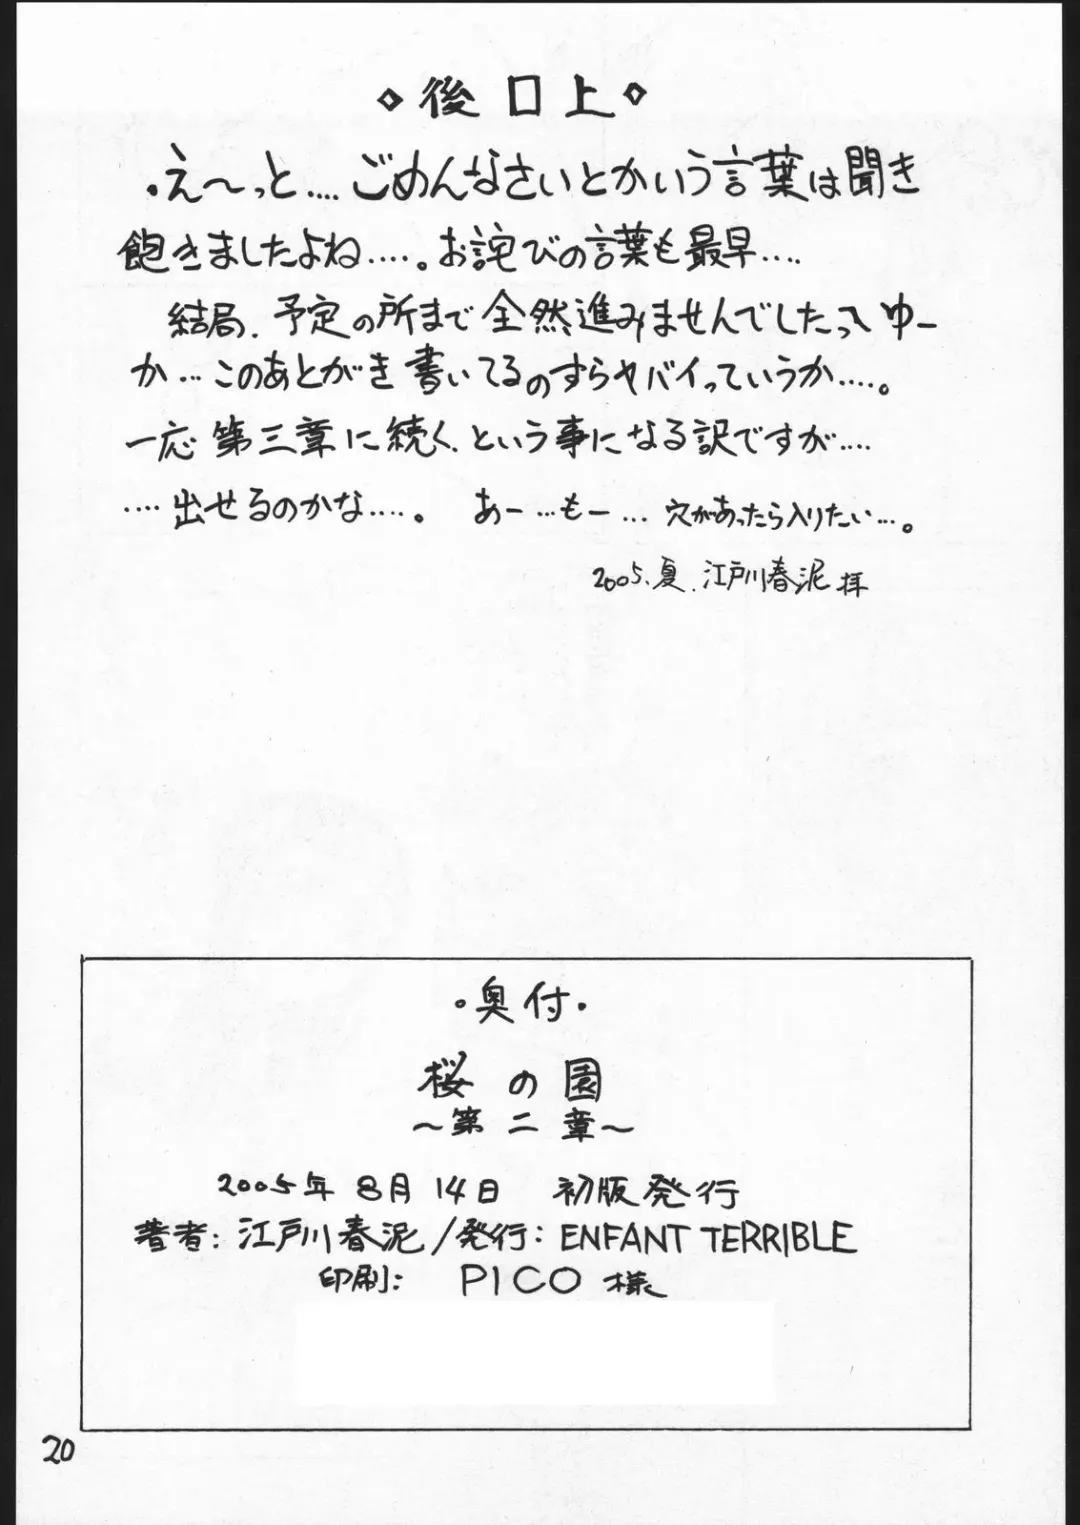 ◇後口上◇
・え〜っと....ごめんなさいとかいう言葉は聞き
飽きましたよね.....。お詫びの言葉も最早....
結局、予定の所まで全然進みませんでしたってゆー
か...このあとがき書いてるのすらヤバイっていうか....。
一応第三章に続く、という事になる訳ですが....
....出せるのかな....。 あー...もー... 穴があったら入りたい...。
2005.夏.江戸川春泥 拝
・奥付・
桜の園
〜第二章〜
2005年8月14日 初版発行
著者:江戸川春泥/発行:ENFANT TERRIBLE
印刷: PICO 様
20